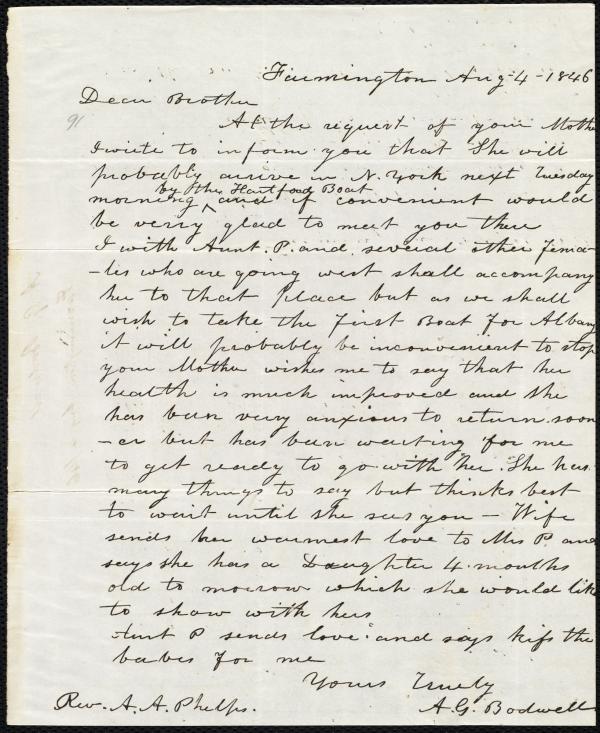 Farmington Aug-4-1846
Dear Brother
91
At the request of your Mother
I write to inform you that She will
probably arrive in N. York next Tuesday
by the Hartford Boat
morning ^ and if convenient would
be verry glad to meet you there
I with Aunt. P. and several other fema-
-les who are going west shall accompany
her to that place but as we shall
wish to take the first Boat for Albany
it will probably be inconvenient to stop
your Mother wishes me to say that her
health is much improved and she
has been very anxious to return soon
-er but has been waiting for me
to get ready to go with her. She has
many things to say but thinks best
to wait until she sees you - Wife
sends her warmest love to Mrs P. and
says she has a Daughter 4 months
old to morrow which she would like
to show with hers
Aunt P sends love and says kiss the
babes for me
Yours Truely
Rev. A. A. Phelps. A. G. Bodwell